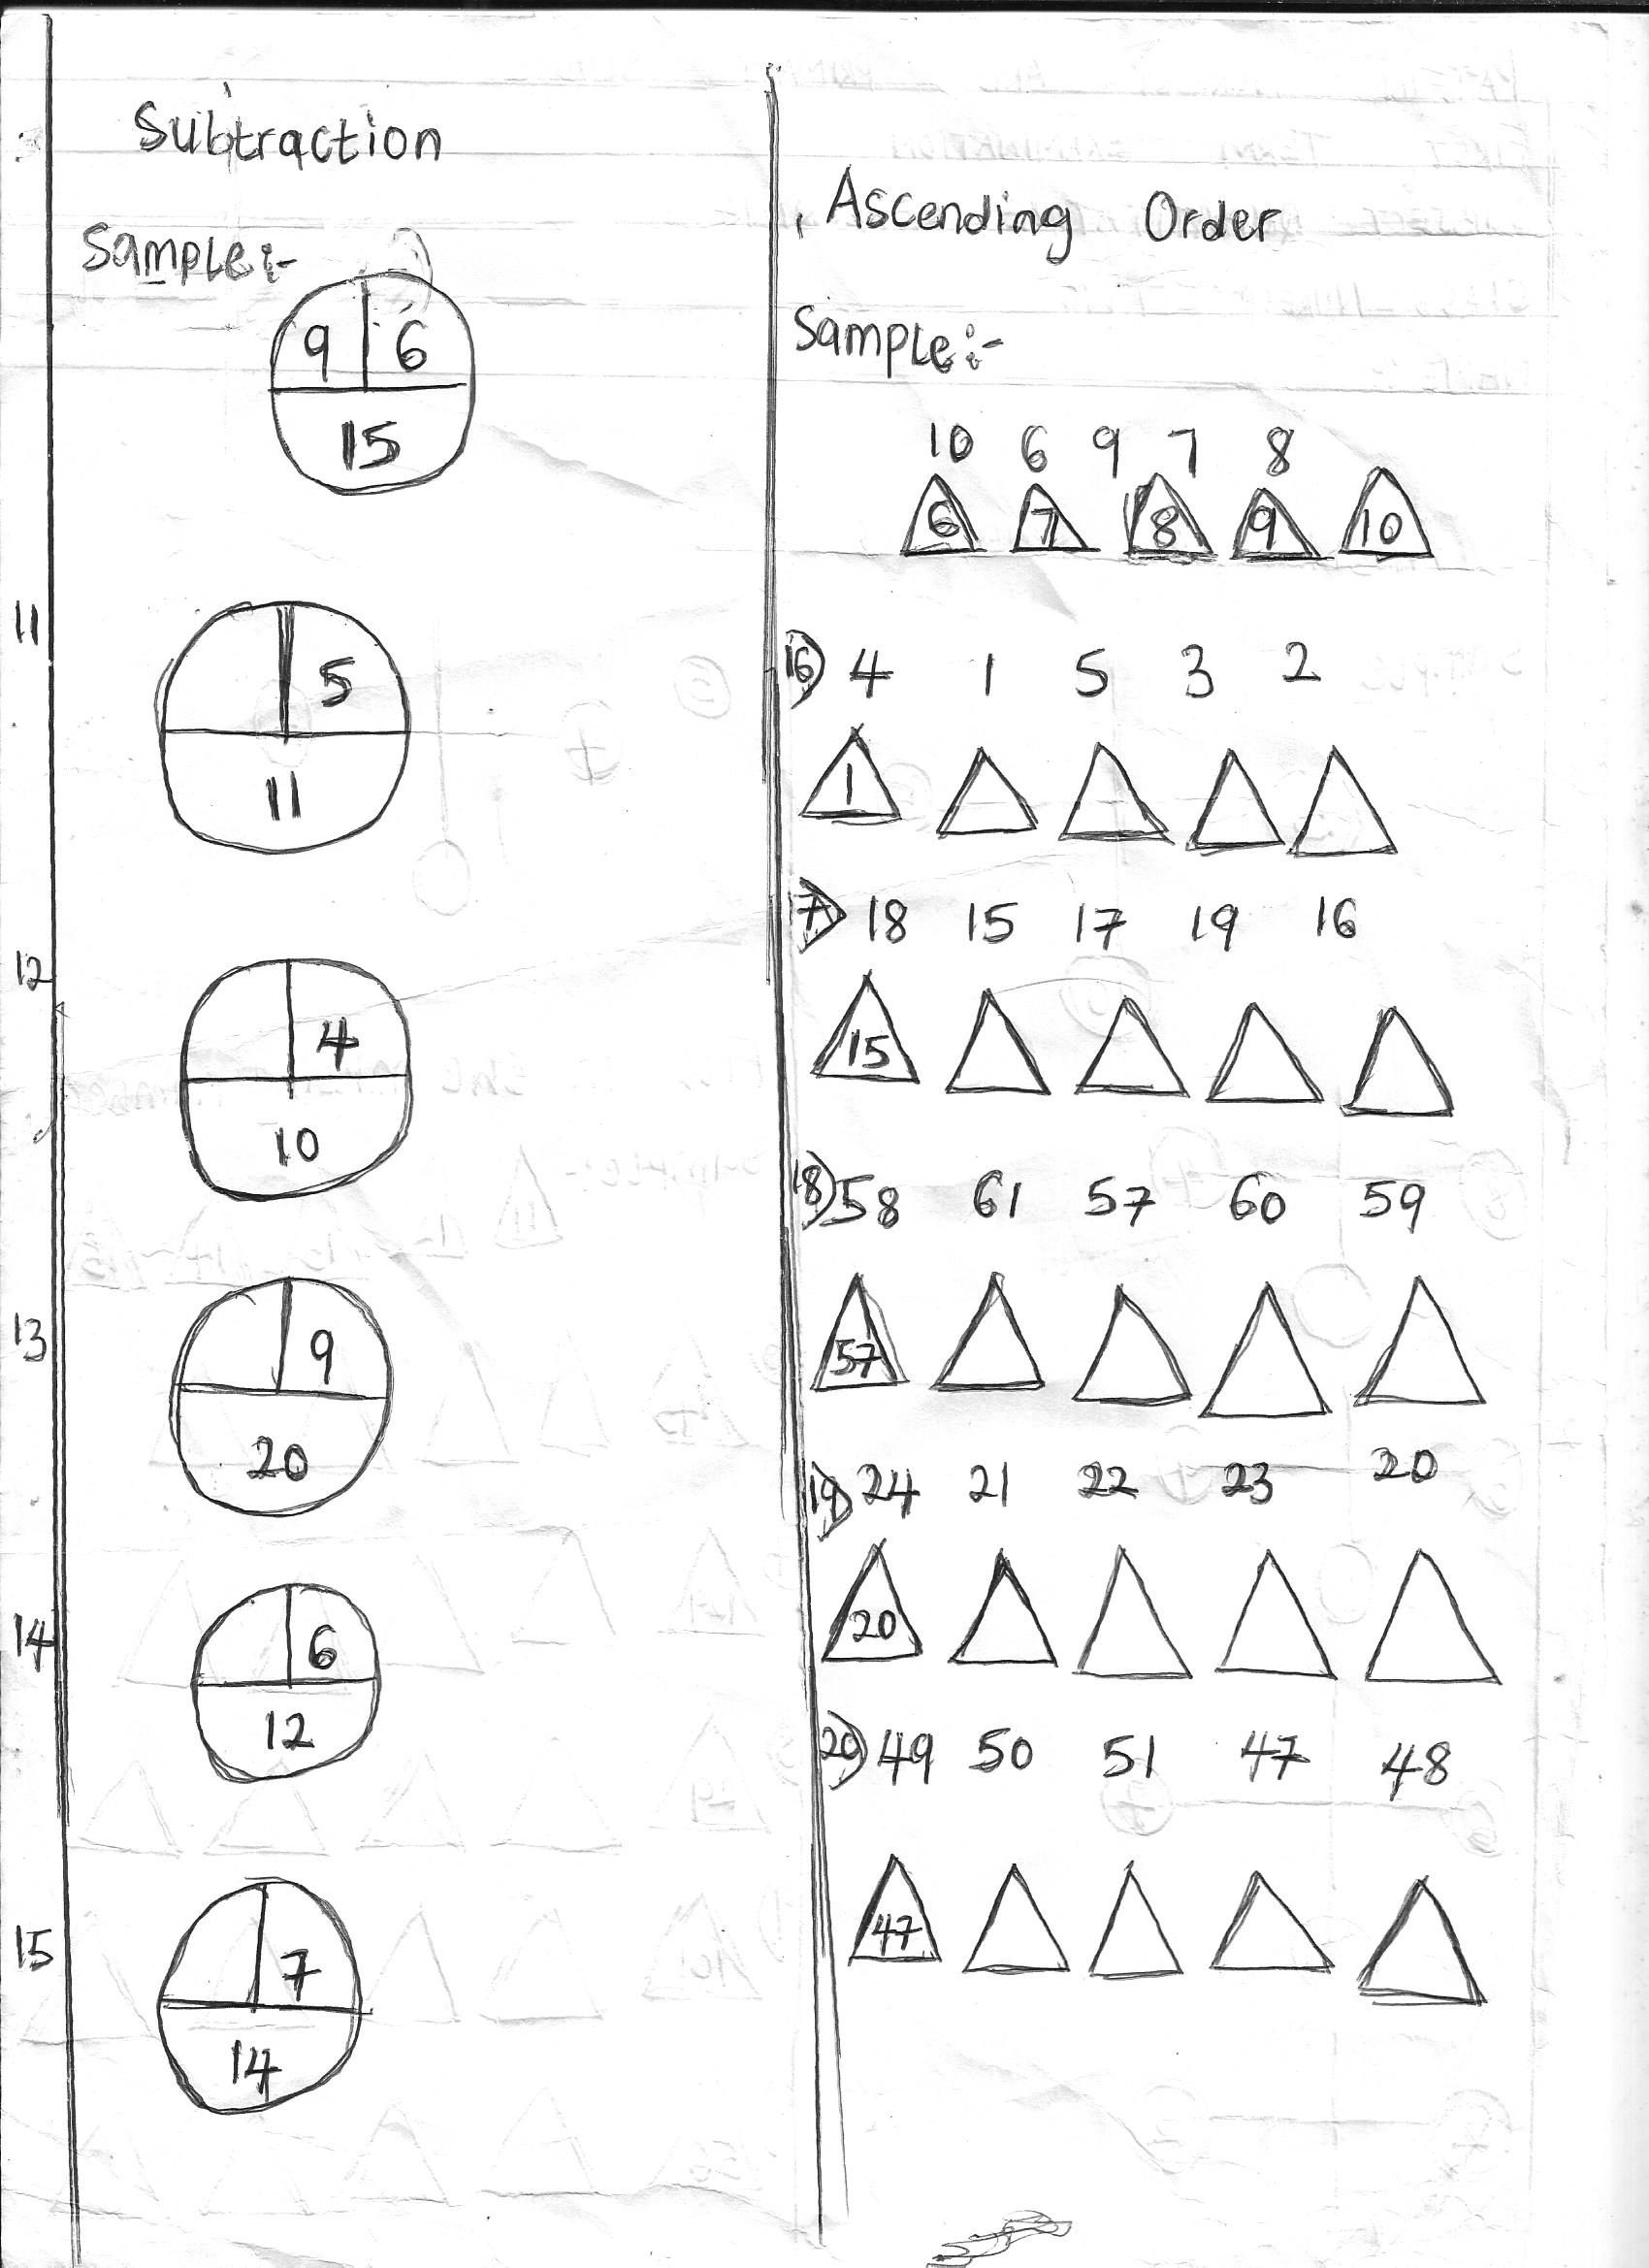 Subtraction
Sample:-
9 6
15
11
5
11
12
4
10
13
9
20
14
6
12
15
7
14
Ascending Order
Sample:-
10 6 9 7 8
6 7 8 9 10
16) 4 1 5 3 2
1
7) 18 15 17 19 16
15
18) 58 61 57 60 59
57
19) 24 21 22 23 20
20
20) 49 50 51 47 48
47